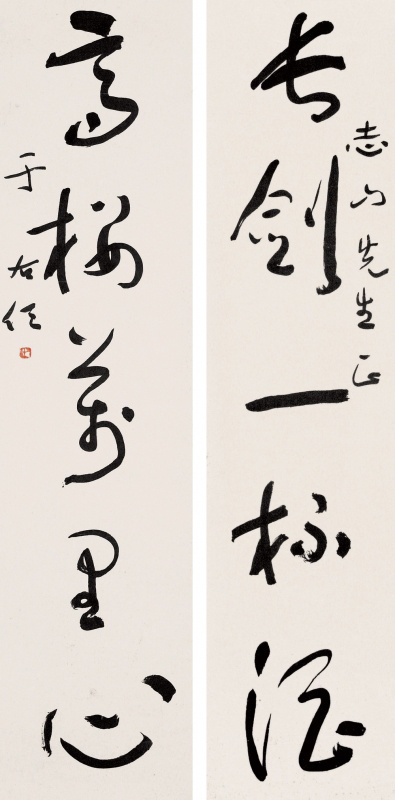 長劍一杯酒
志山先生正
高樓萬里心
于右任